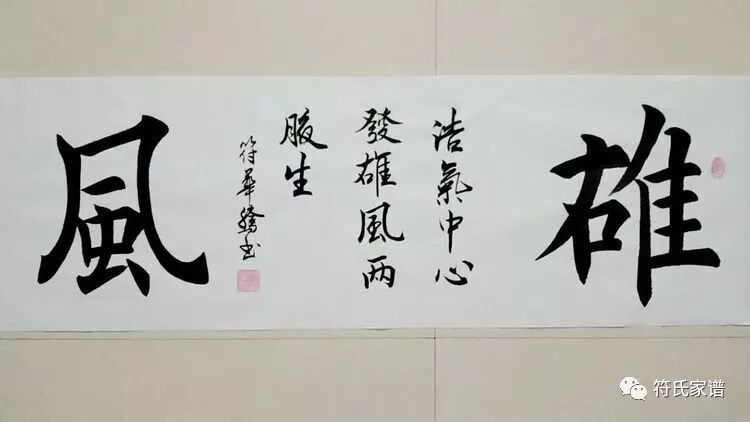 雄
浩氣中心
發雄風两
腋生
符華騰书
風
符氏家谱